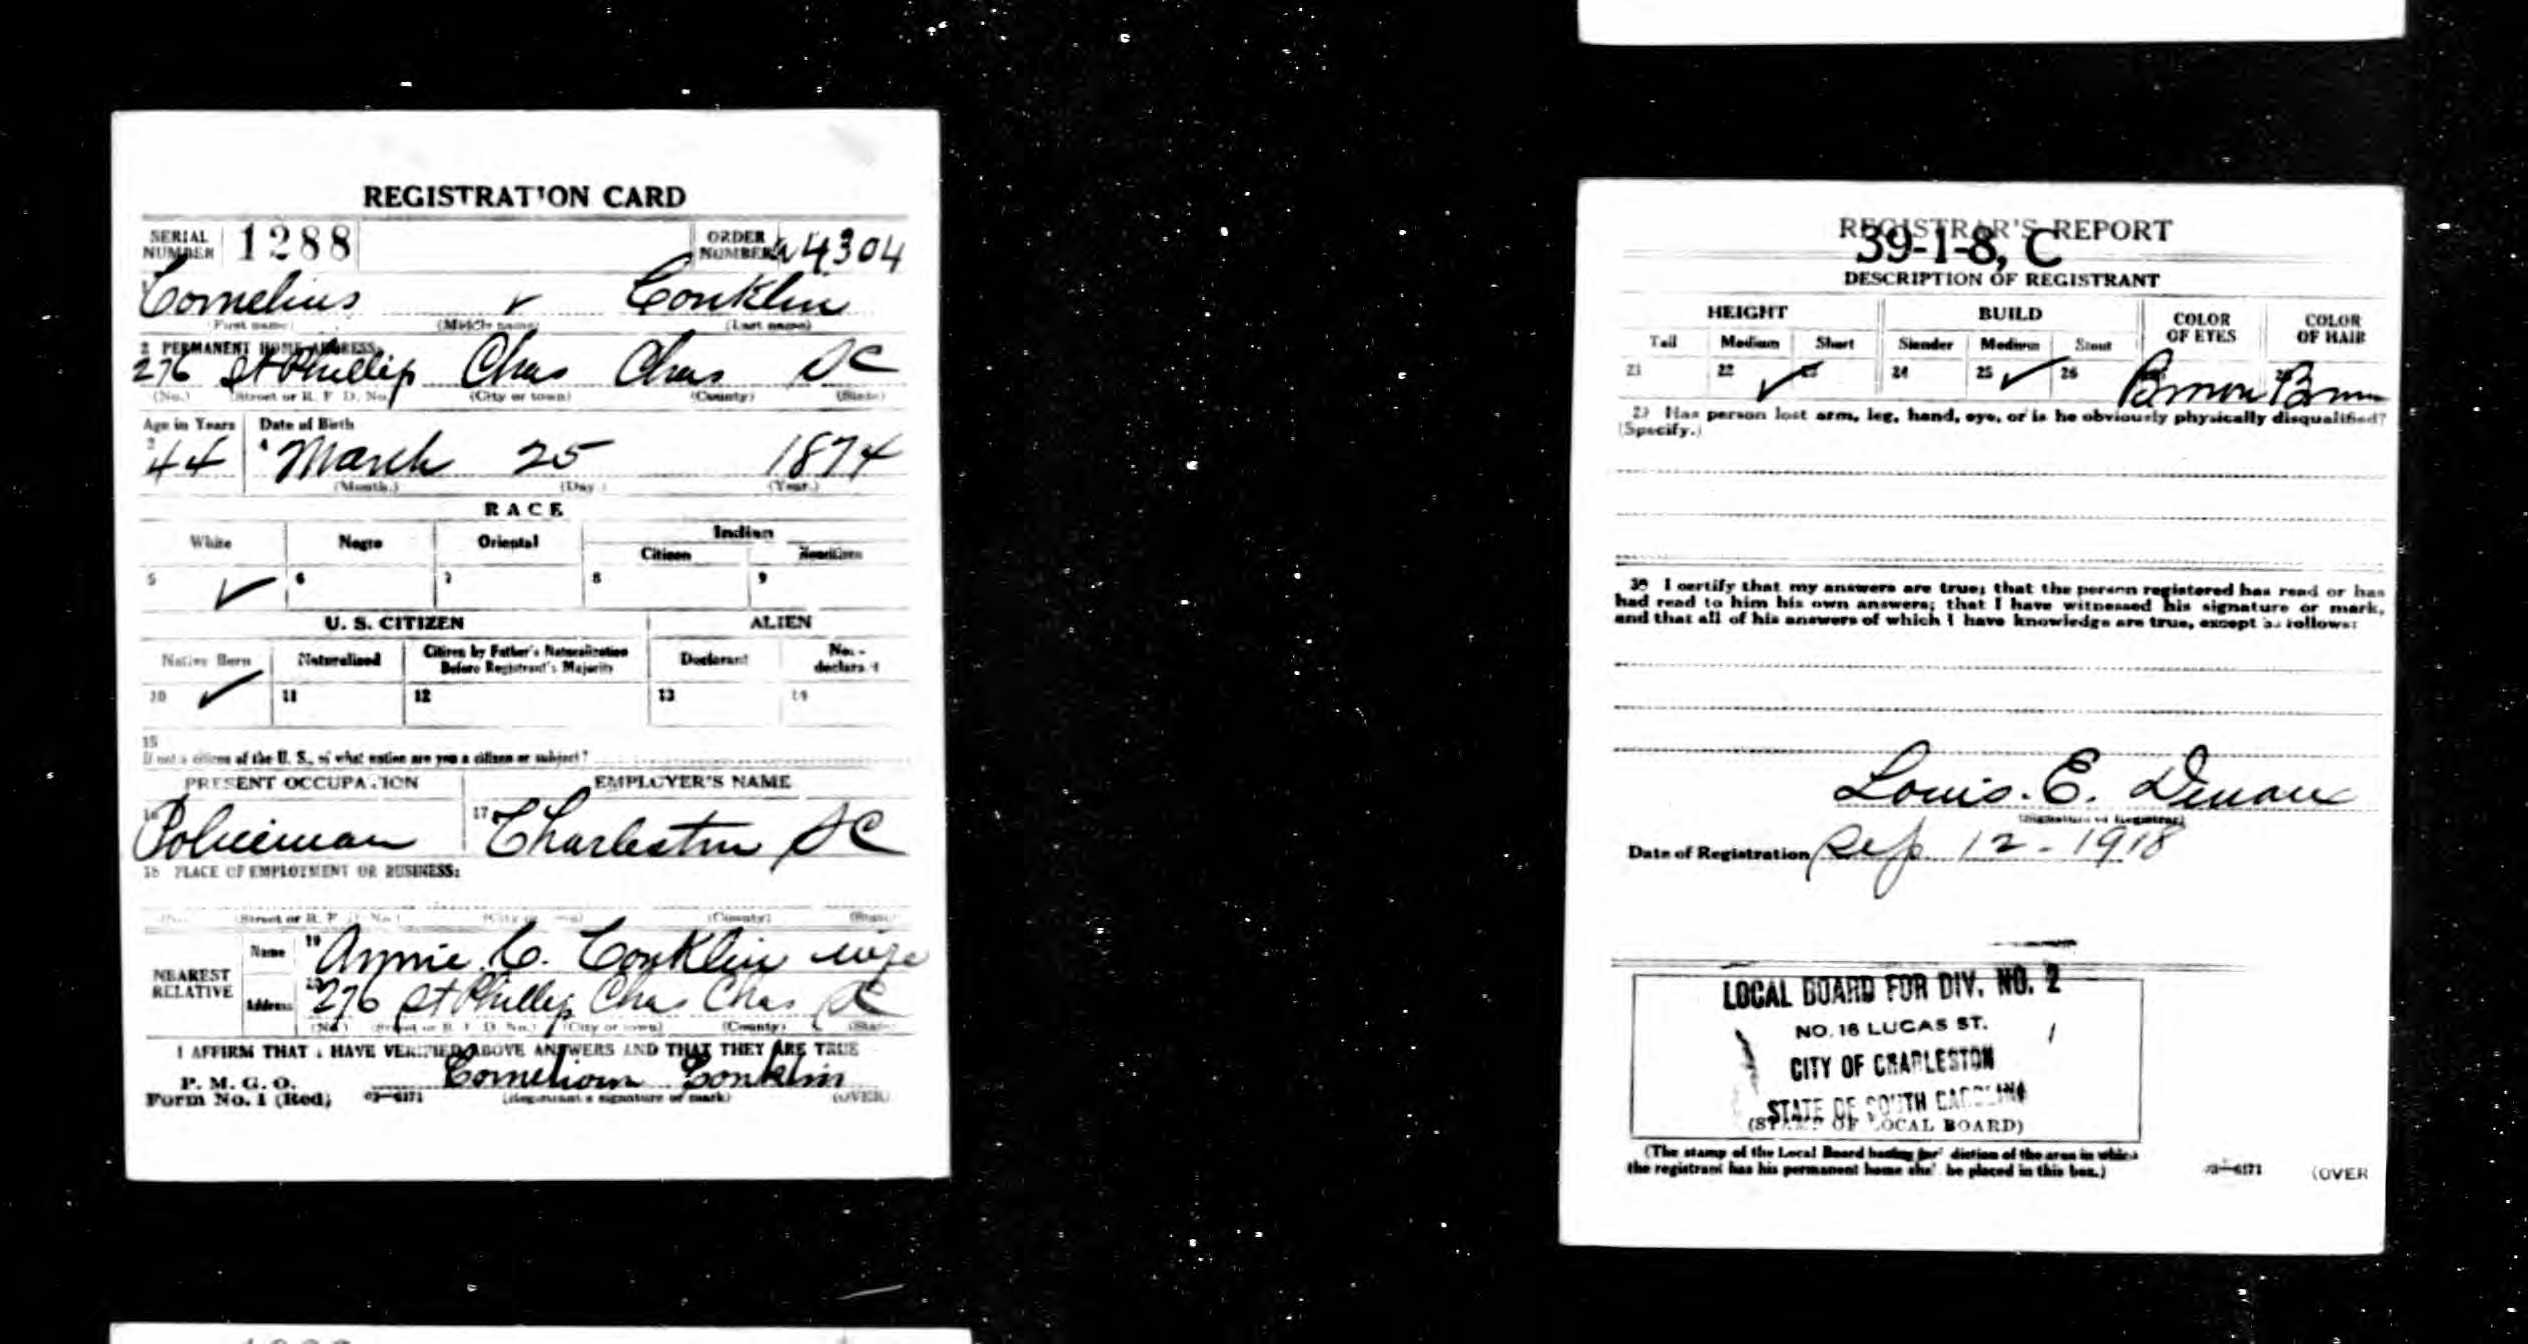 REGISTRATION CARD
SERIAL NUMBER 1288 ORDER NUMBER A 4304
Cornelius Conklin
(First name) (Middle name) (Last name)
2 PERMANENT HOME ADDRESS:
276 St Phillip Chas Chas SC
(No.) (Street or R. F. D. No.) (City or town) (County) (State)
Age in Years Date of Birth
3 44 4 March 25 1874
(Month.) (Day.) (Year.)
RACE
White Negro Oriental Indian
Citizen Noncitizen
5 ✓ 6 7 8 9
U. S. CITIZEN ALIEN
Native Born Naturalized Citizen by Father's Naturalization Before Registrant's Majority Declarant Non-declarant
10 ✓ 11 12 13 14
15
If not a citizen of the U. S., of what nation are you a citizen or subject?
PRESENT OCCUPATION EMPLOYER'S NAME
16 Policeman 17 Charleston SC
18 PLACE OF EMPLOYMENT OR BUSINESS:
(No.) (Street or R. F. D. No.) (City or town) (County) (State)
NEAREST RELATIVE Name 19 Annie C. Conklin wife
Address 20 276 St Phillip Chas Chas SC
(No.) (Street or R. F. D. No.) (City or town) (County) (State)
I AFFIRM THAT I HAVE VERIFIED ABOVE ANSWERS AND THAT THEY ARE TRUE
P. M. G. O.
Form No. 1 (Red) 03—6171 Conklin
(Registrant's signature or mark) (OVER)
REGISTRAR'S REPORT
39-1-8, C
DESCRIPTION OF REGISTRANT
HEIGHT BUILD COLOR OF EYES COLOR OF HAIR
Tall Medium Short Slender Medium Stout
21 22 ✓ 23 24 25 ✓ 26 Brown Brown
29 Has person lost arm, leg, hand, eye, or is he obviously physically disqualified?
(Specify.)
30 I certify that my answers are true; that the person registered has read or has
had read to him his own answers; that I have witnessed his signature or mark,
and that all of his answers of which I have knowledge are true, except as follows:
Louis. E.
(Signature of Registrar)
Date of Registration Sep 12 - 1918
LOCAL BOARD FOR DIV. NO. 2
NO. 16 LUCAS ST.
CITY OF CHARLESTON
STATE OF SOUTH CAROLINA
(STAMP OF LOCAL BOARD)
(The stamp of the Local Board having jurisdiction of the area in which
the registrant has his permanent home shall be placed in this box.)
03—6171 (OVER